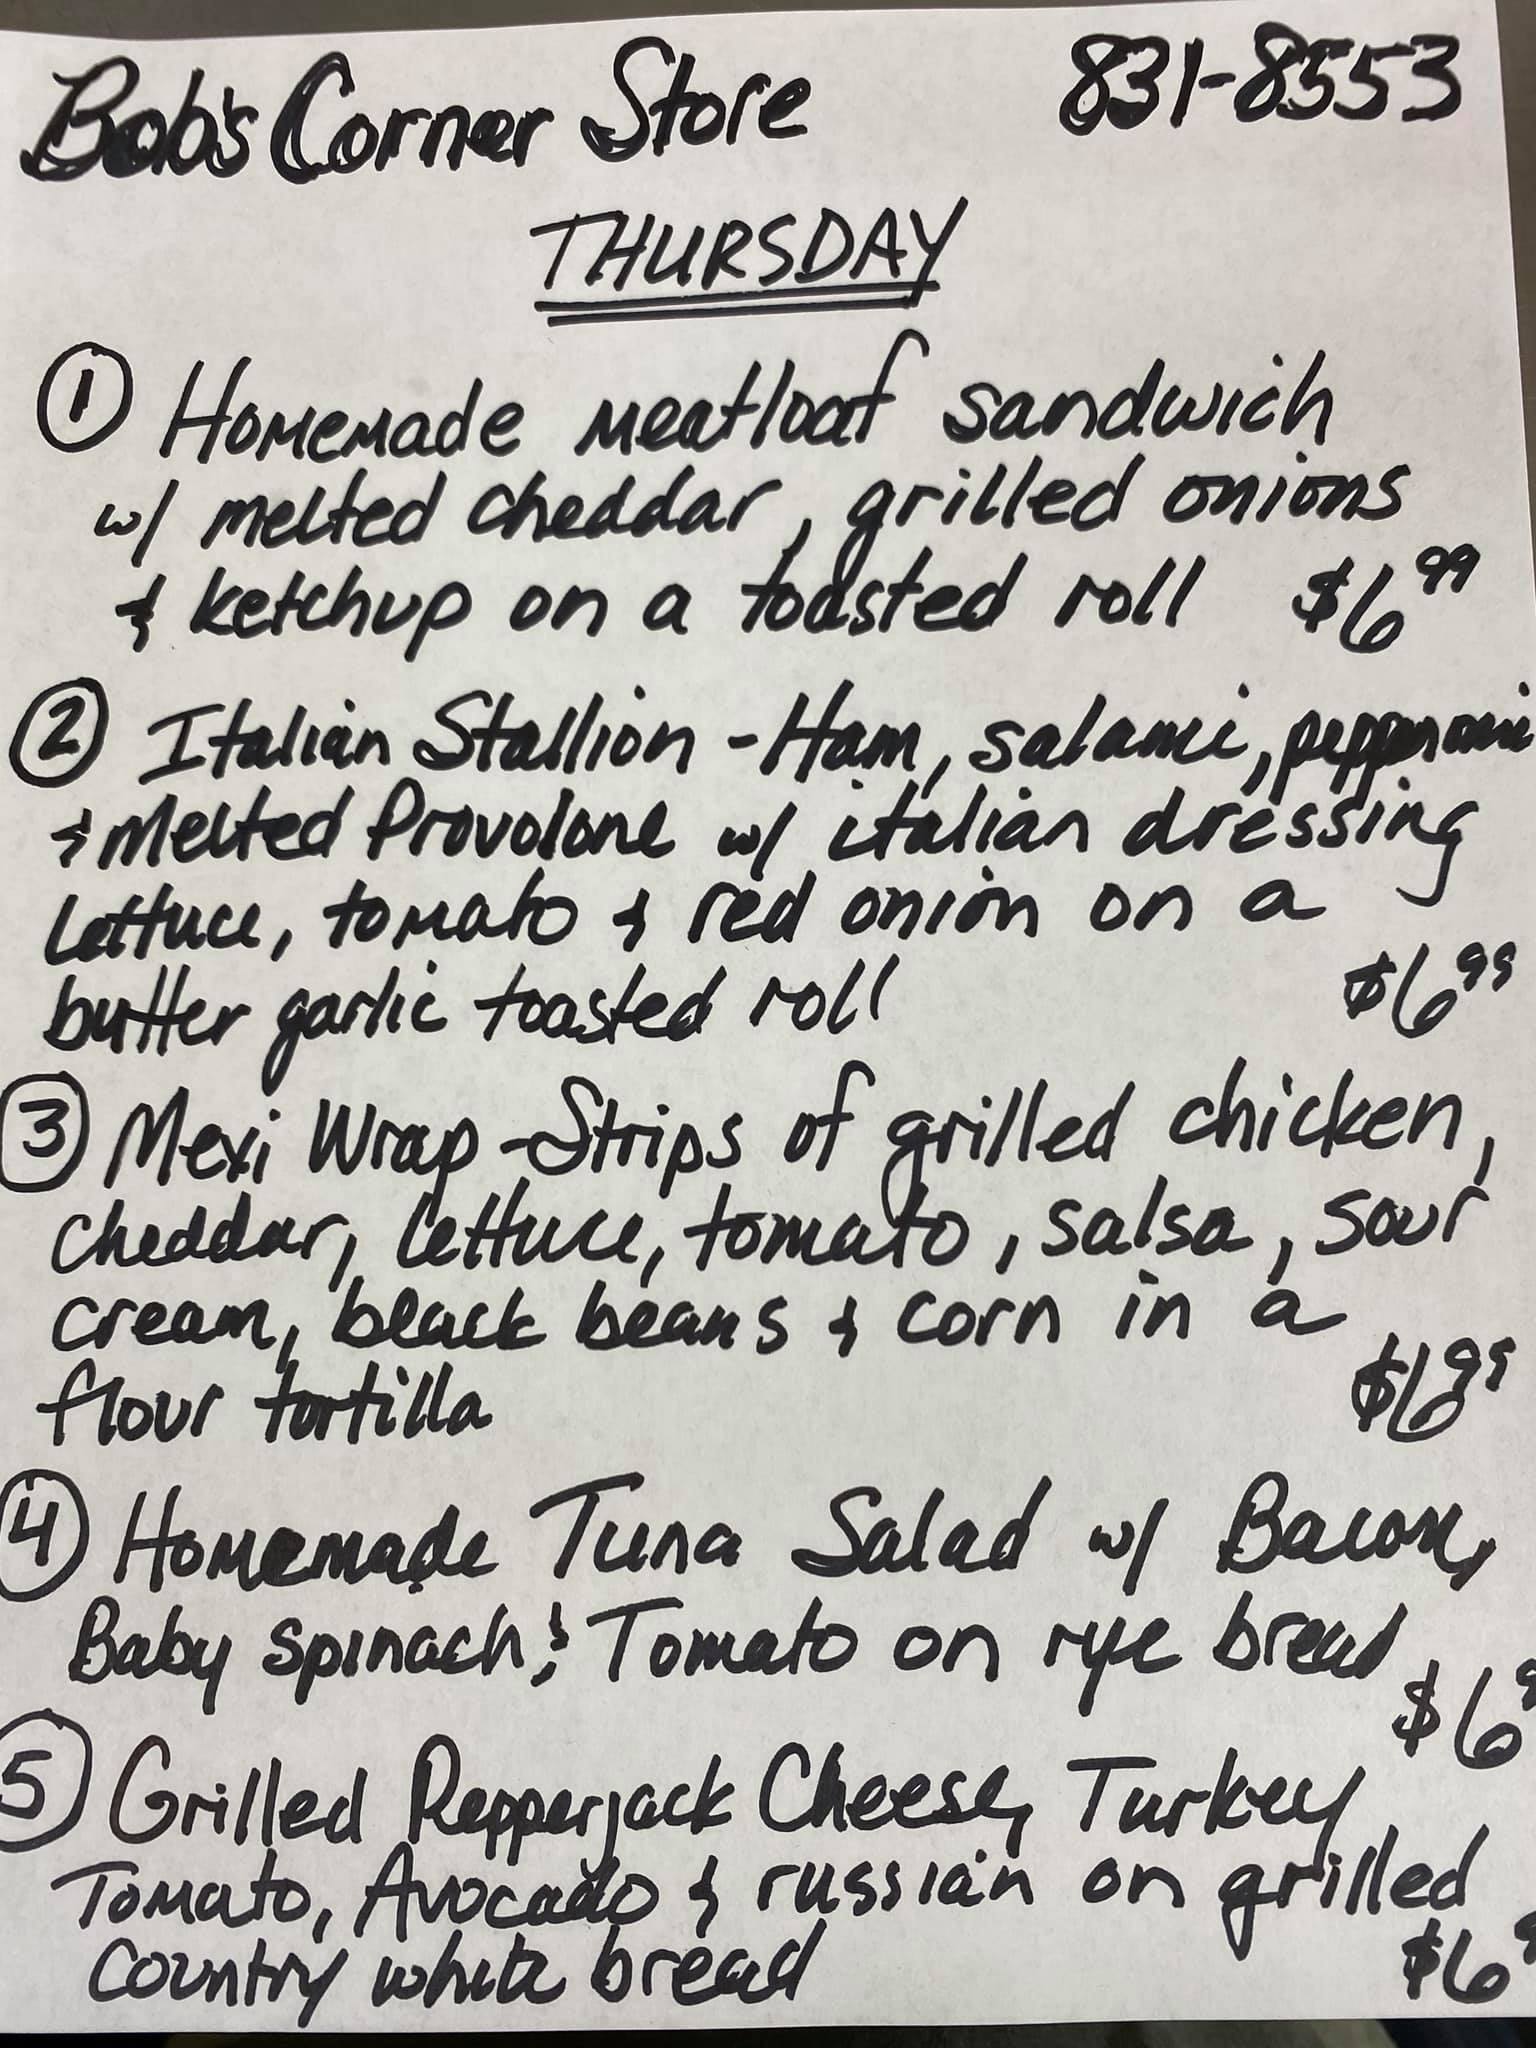 Bob's Corner Store 831-8553
THURSDAY
① Homemade meatloaf sandwich
w/ melted cheddar, grilled onions
& ketchup on a toasted roll $6 99
② Italian Stallion - Ham, salami, pepperoni
& Melted Provolone w/ italian dressing
lettuce, tomato & red onion on a
butter garlic toasted roll $6 99
③ Mexi Wrap - Strips of grilled chicken,
cheddar, lettuce, tomato, salsa, sour
cream, black beans & corn in a
flour tortilla $6 99
④ Homemade Tuna Salad w/ Bacon,
Baby spinach, & Tomato on rye bread
$6 9
⑤ Grilled Pepperjack Cheese, Turkey,
Tomato, Avocado & russian on grilled
Country white bread $6 9